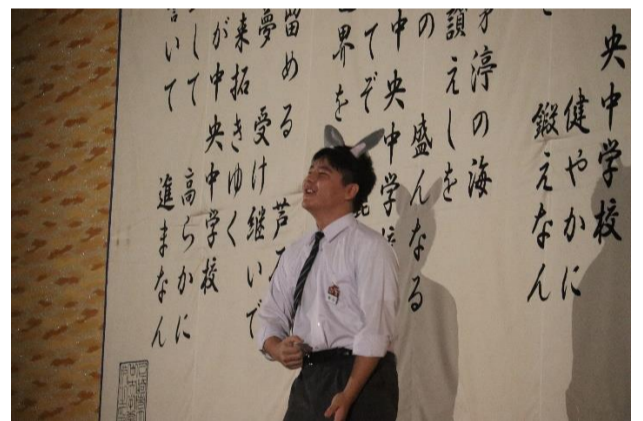 央中学校
健やかに
鍛えなん
渟の海
讃えしを
の 盛んなる
中央中学校
てぞ
界を
留める 芦
夢 受け継いで
来拓きゆく
が中央中学校
して 高らかに
いて 進まなん